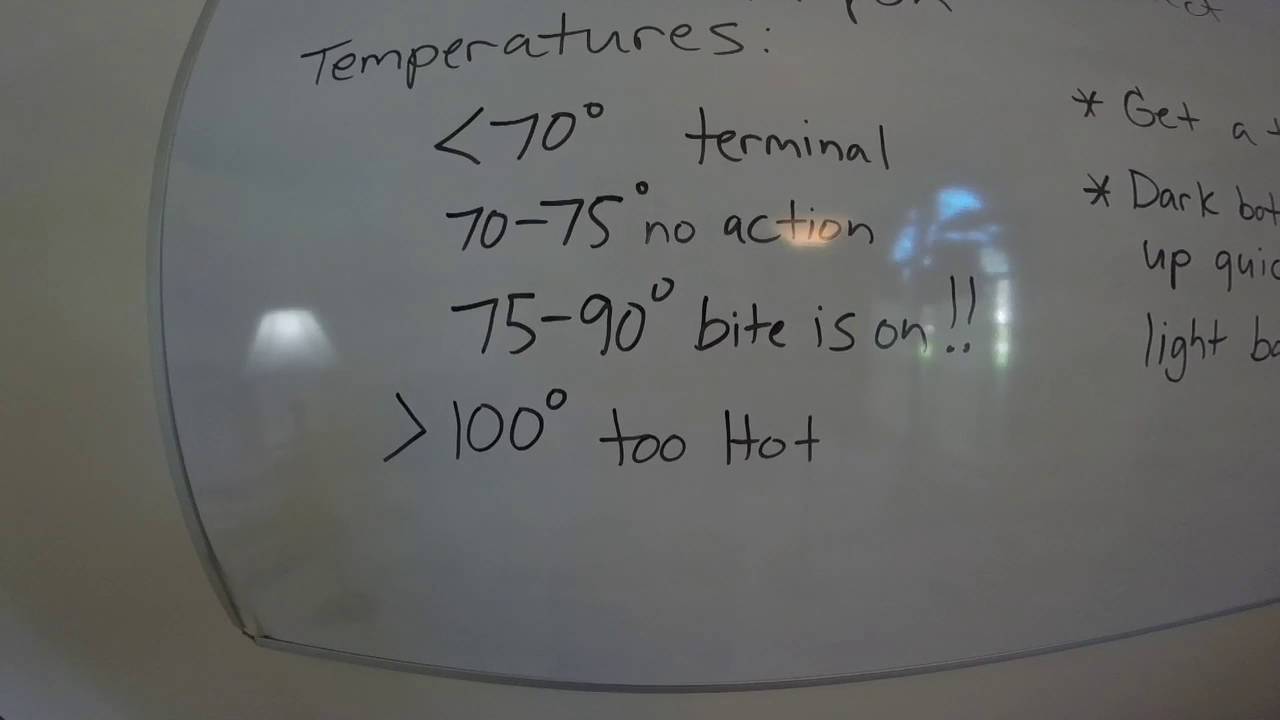 Temperatures:
<70° terminal
70-75° no action
75-90° bite is on!!
>100° too Hot
* Get a
* Dark
up
light